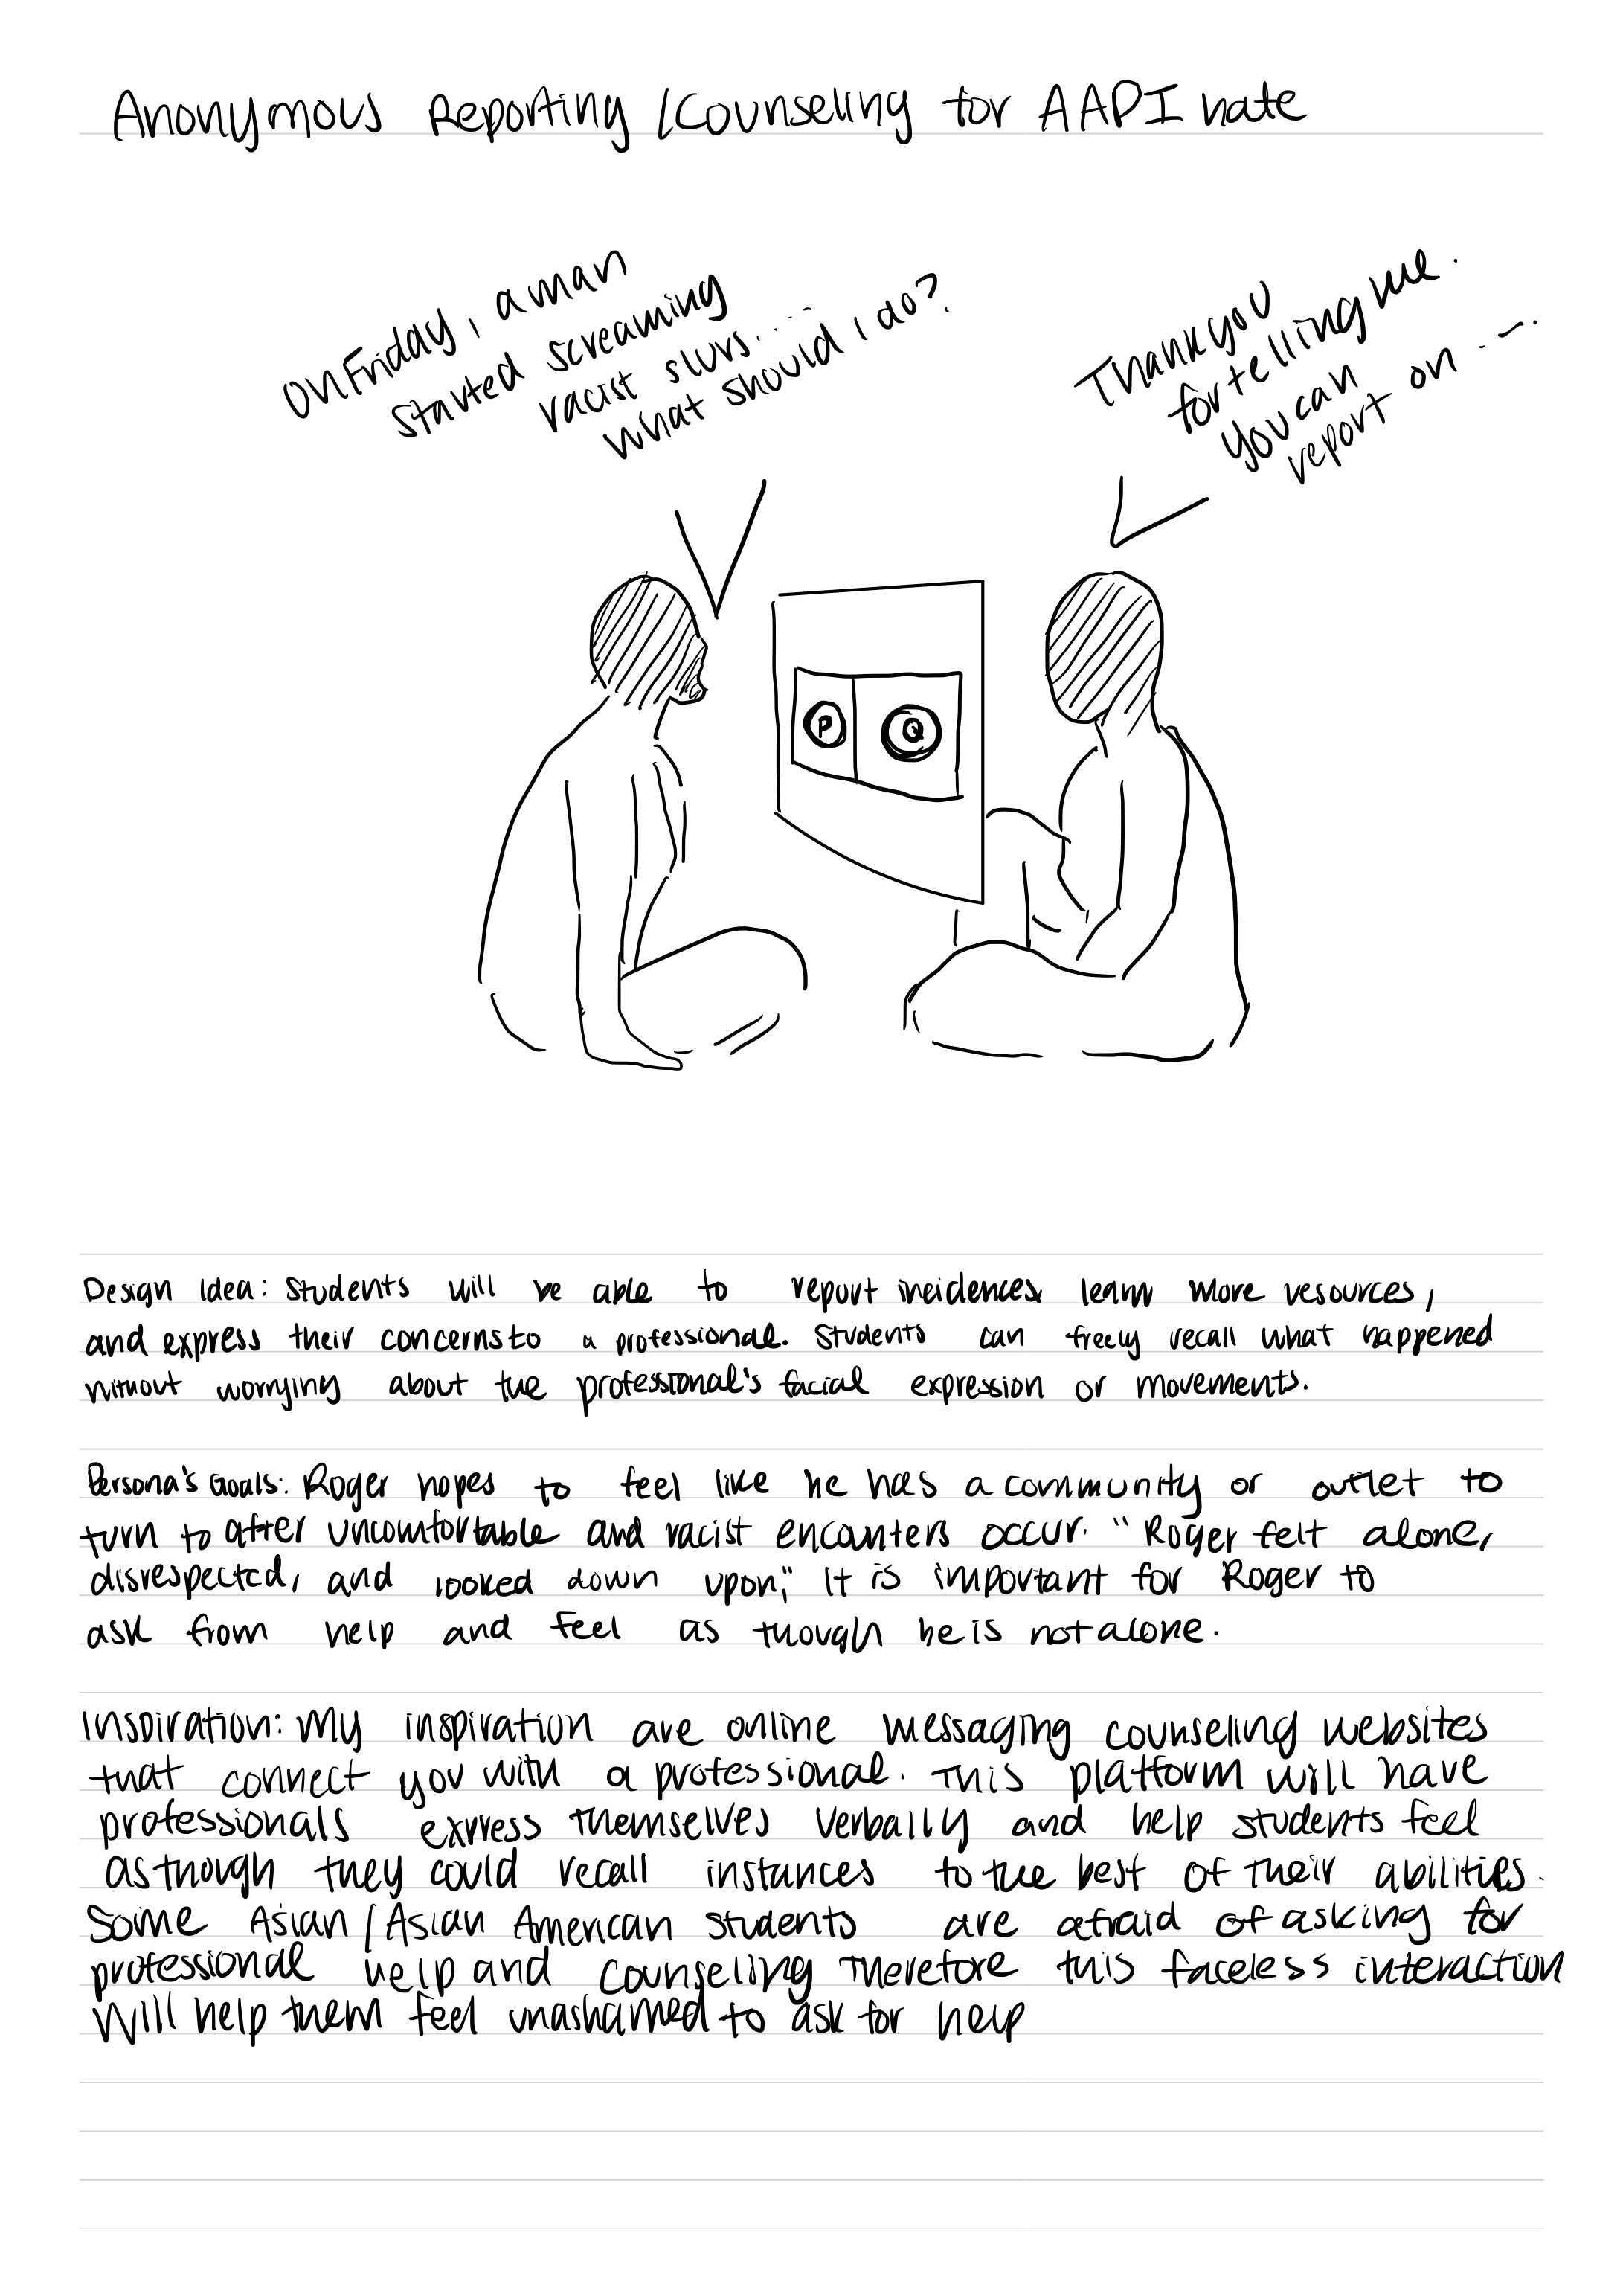 Anonymous Reporting / Counseling for AAPI hate
On Friday, a man
started screaming
racist slurs....
What should I do?
Thank you
for telling me.
You can
report on ...
P Q
Design Idea: Students will be able to report incidences learn more resources,
and express their concerns to a professional. Students can freely recall what happened
without worrying about the professional's facial expression or movements.
Persona's Goals: Roger hopes to feel like he has a community or outlet to
turn to after uncomfortable and racist encounters occur. "Roger felt alone,
disrespected, and looked down upon;" It is important for Roger to
ask from help and feel as though he is not alone.
Inspiration: My inspiration are online messaging counseling websites
that connect you with a professional. This platform will have
professionals express themselves verbally and help students feel
as though they could recall instances to the best of their abilities.
Some Asian / Asian American students are afraid of asking for
professional help and counseling Therefore this faceless interaction
Will help them feel unashamed to ask for help